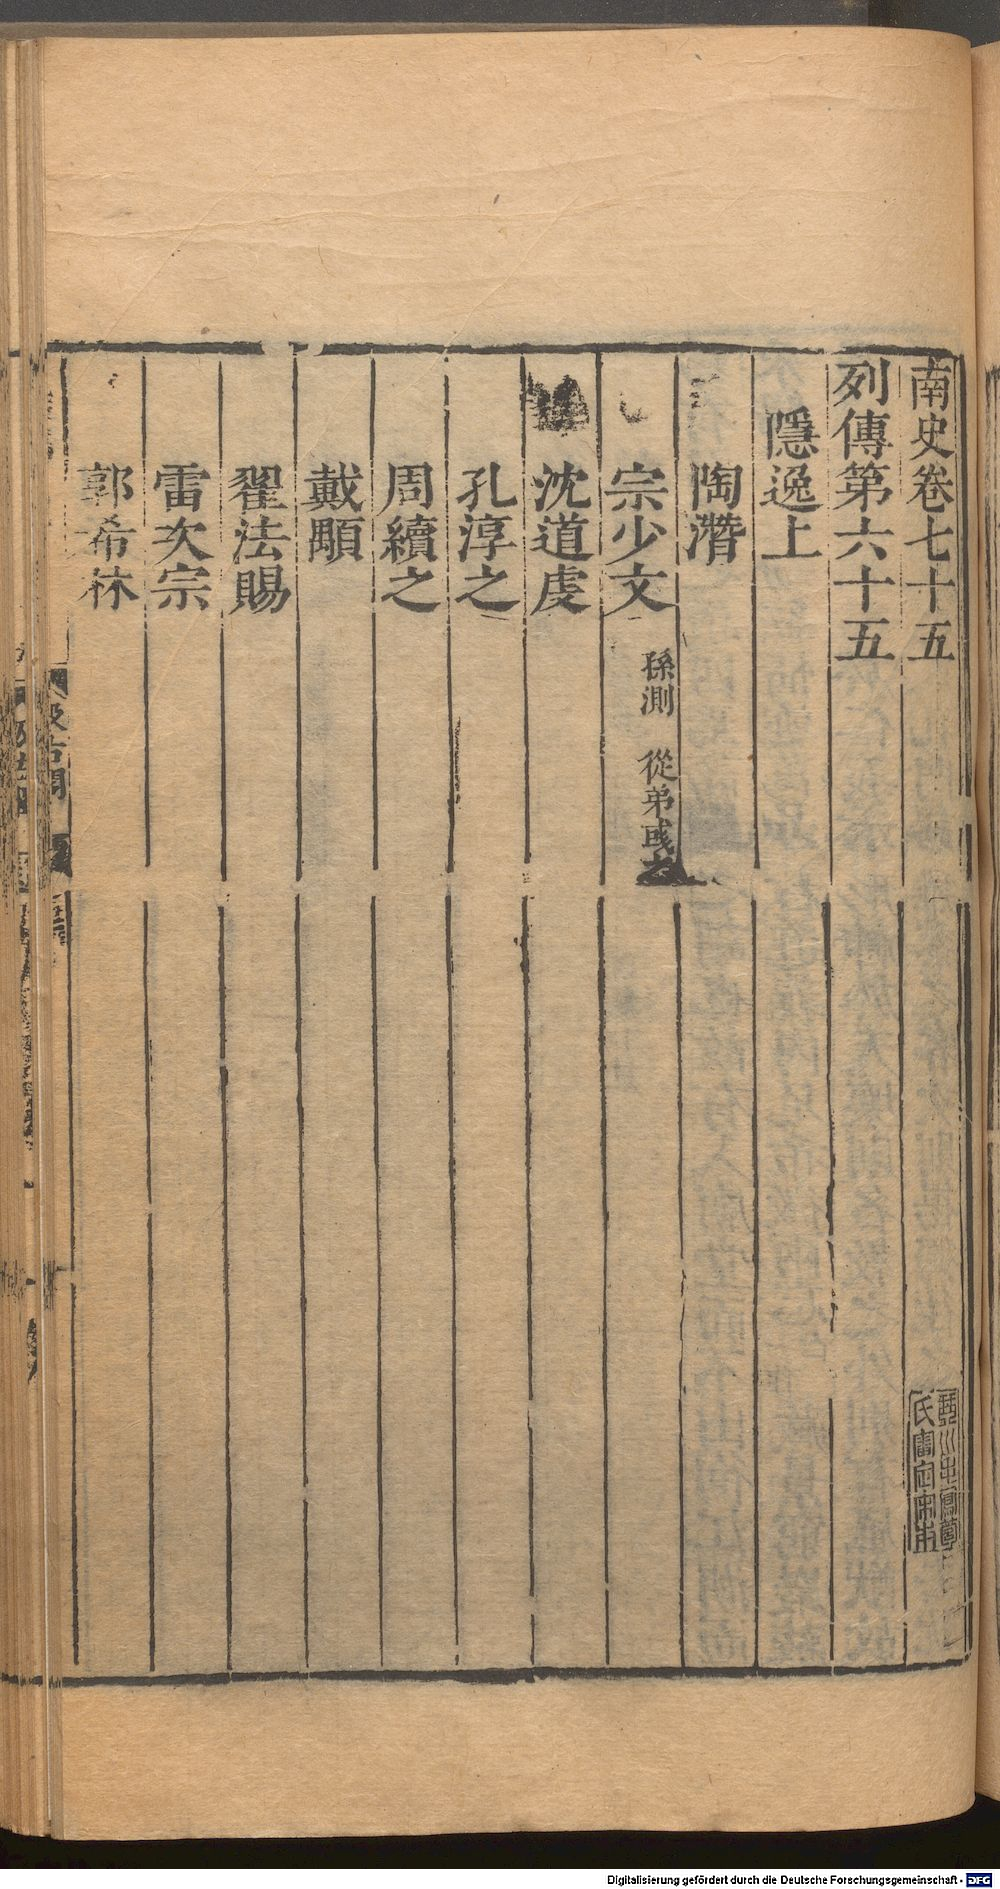 南史卷七十五
列傳第六十五
隱逸上
陶潛
宗少文 孫測 從弟彧之
沈道虔
孔淳之
周續之
戴顒
翟法賜
雷次宗
郭希林
汲古閣
Digitalisierung gefördert durch die Deutsche Forschungsgemeinschaft - DFG